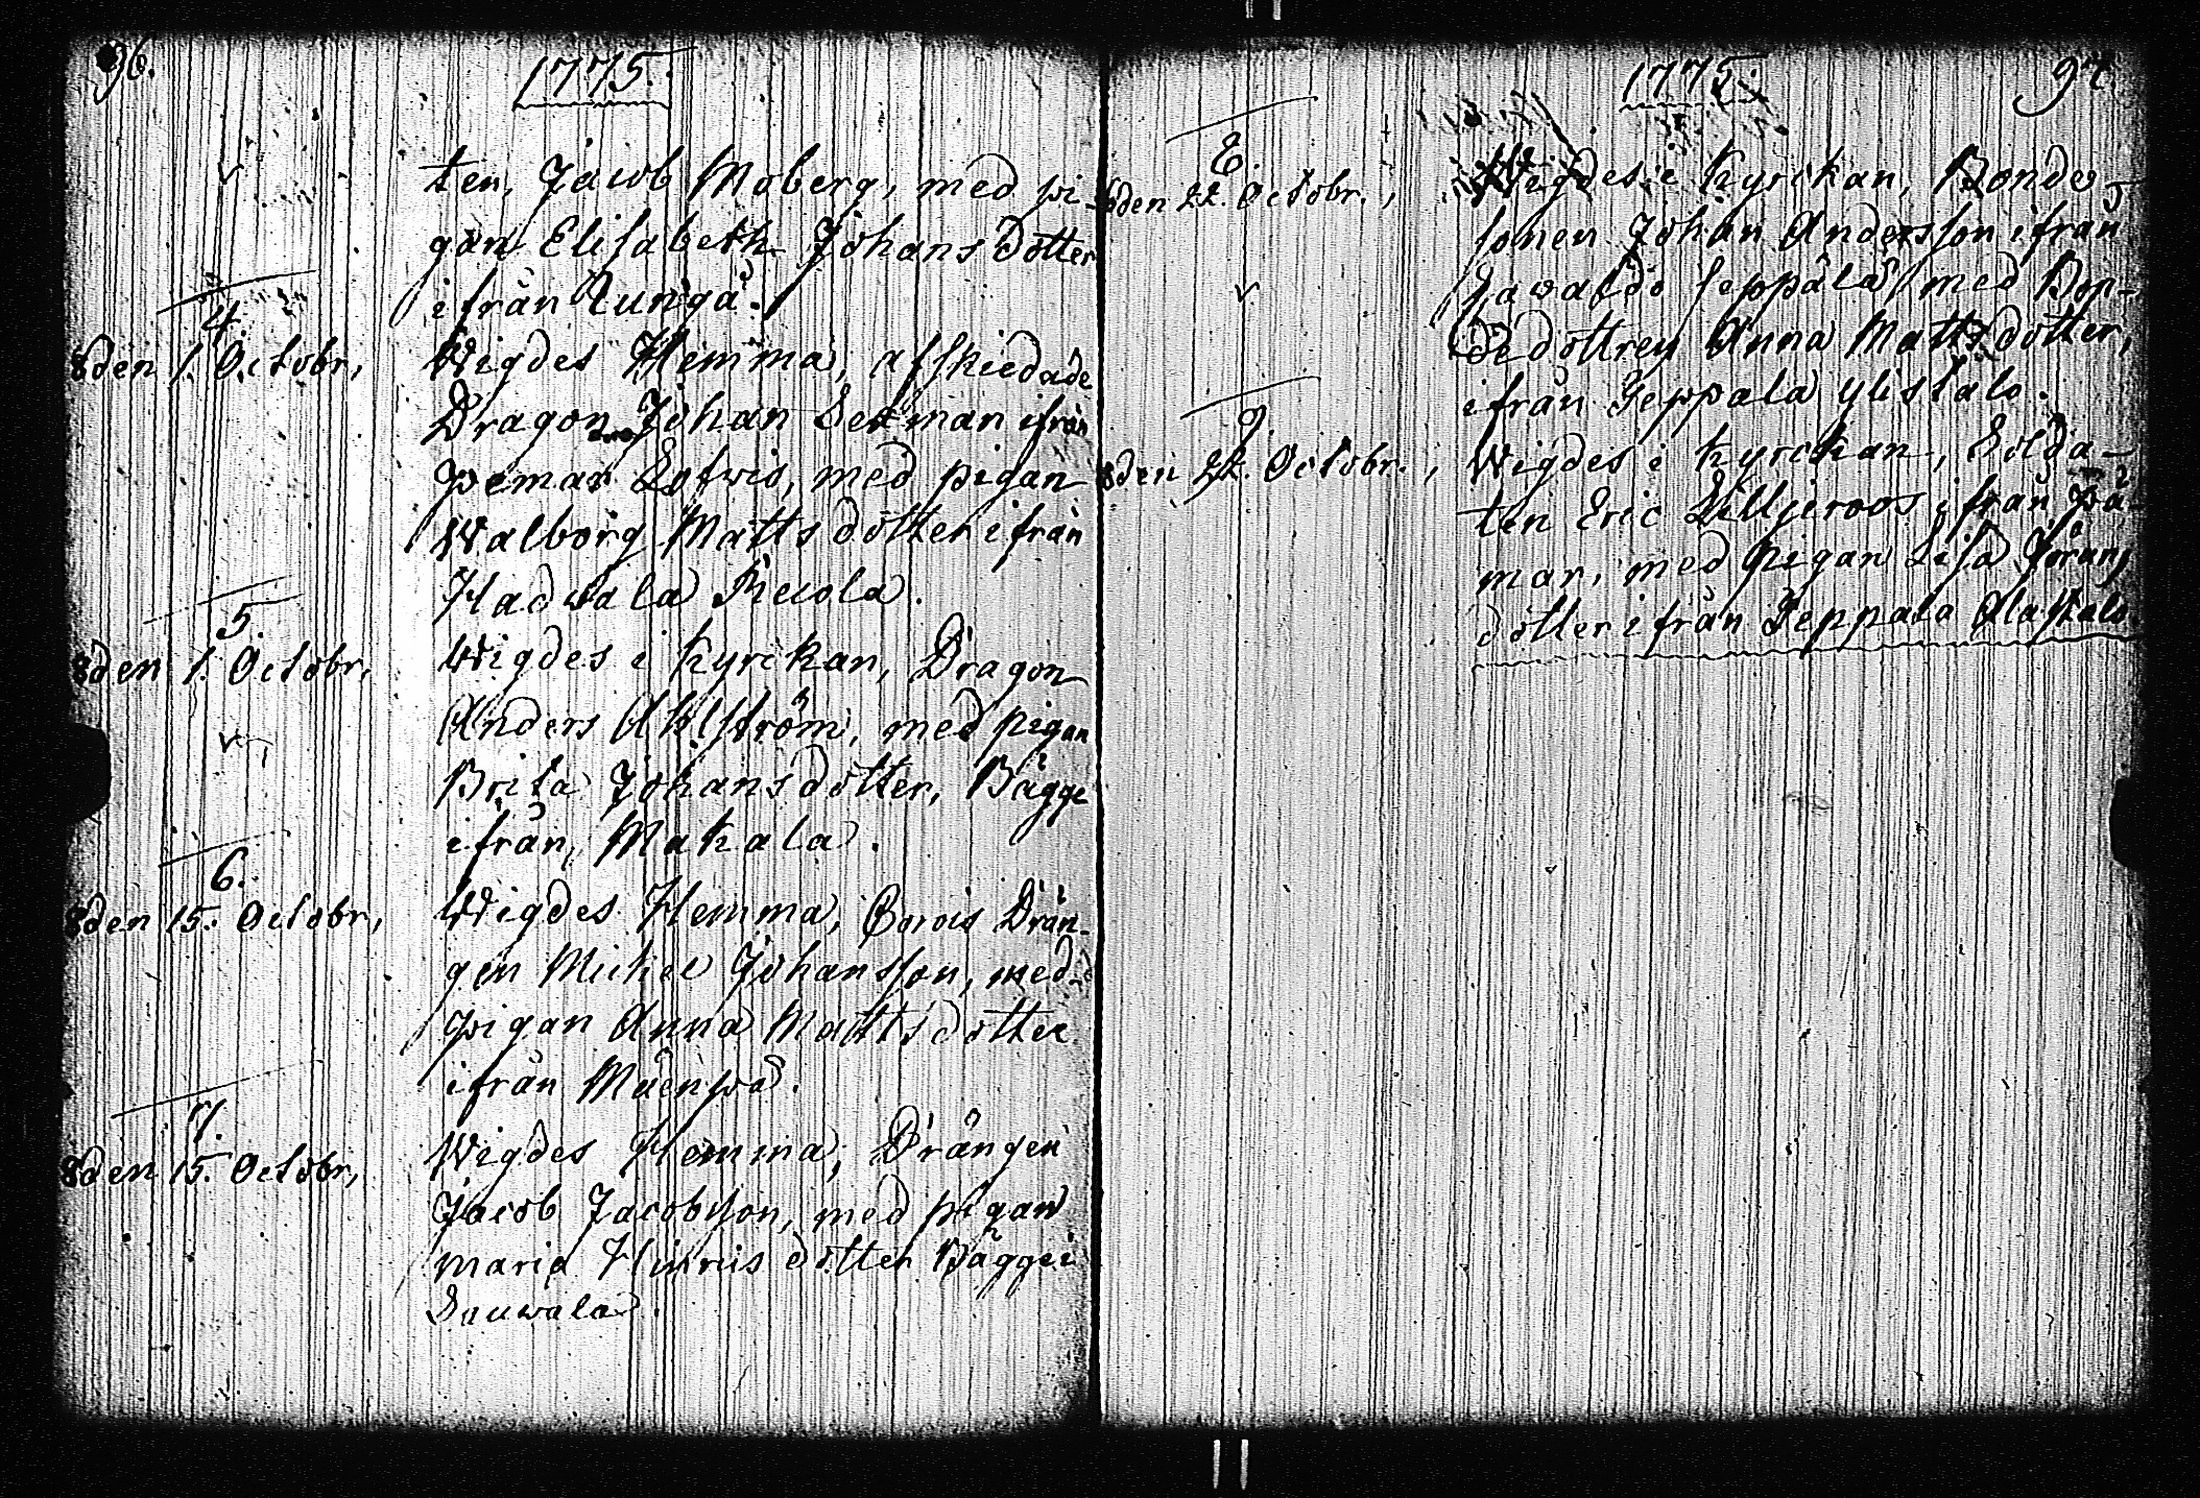 96.
1775.
ten, Jacob Moberg, med pi-
gan Elisabeth Johans dotter
ifrån
4.
den 1. Octobr,
Wigdes Hemma, afskiedade
Dragon Johan Lekman ifrån
Pemar med pigan
Walborg Matts dotter ifrån
5.
den 1. Octobr,
Wigdes i kyrckan, Dragon
Anders Ahlström, med pigan
Brita Johansdotter, Bägge
ifrån, Makala.
6.
den 15. Octobr,
Wigdes Hemma, Drän-
gen Michel Johansson, med
pigan Anna Matts dotter
ifrån
7.
den 15. Octobr,
Wigdes Hemma, Drängen
Jacob Jacobsson, med pigan
maria Hinrics dotter Bägge i
Sauwala.
1775.
97
8.
den 22. Octobr.,
Wigdes i kyrckan, Bonde
sonen Johan Andersson ifrån
med Bon-
de dottren Anna Matts dotter,
ifrån Seppala Ylistalo.
9.
den 22. Octobr.,
Wigdes i kyrckan, Solda-
ten Eric Lilljeroos ifrån Pä-
mar, med pigan Lisa Jörans
dotter ifrån Seppala Alastalo